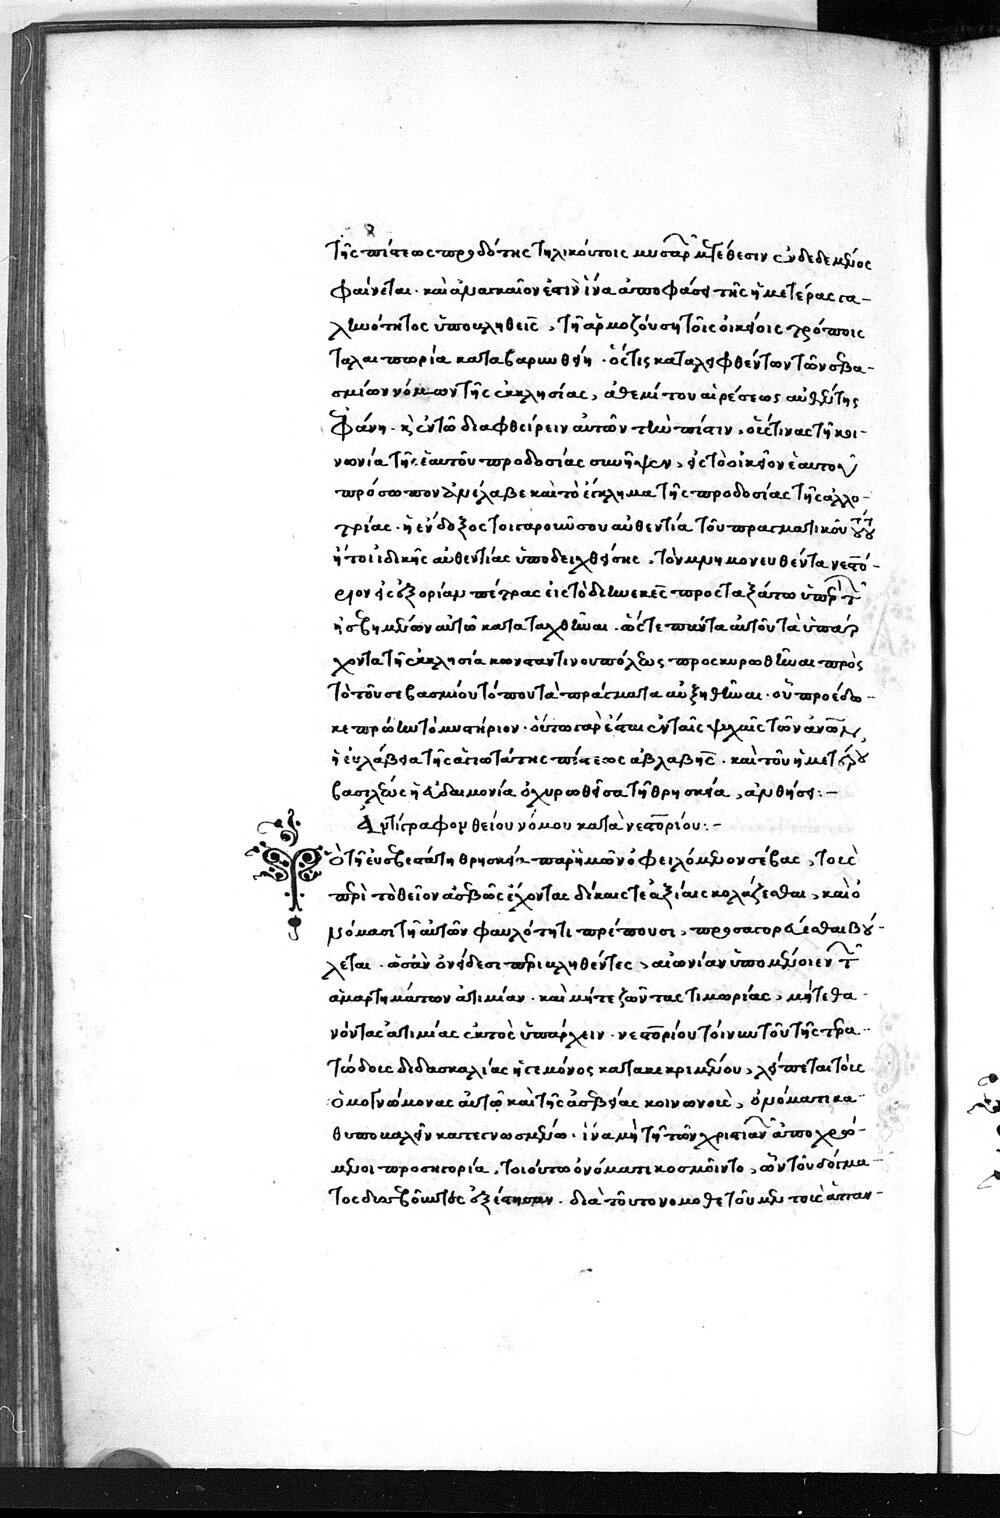 τῆς πίστεως προδότης τηλικούτοις μυσαρ μ τέθεσιν ἐνδεδεμένος
φαίνεται· καὶ ἀναγκαῖον ἐστὶν ἵνα ἀποφάσει τῆς ἡμετέρας γα-
ληνότητος ὑποκληθεὶς, τῇ ἁρμοζούσῃ τοῖς οἰκείοις τρόποις
ταλαιπωρία καταβαρυνθείη· ὅστις καταλειφθέντων τῶν σεβα-
σμίων νόμων τῆς ἐκκλησίας, ἀθεμίτου αἱρέσεως αὐθέντης
ἐφάνη· κ ἐν τῶ διαφθείρειν αὐτῶν τὴν πίστιν, οἵστινας τῇ κοι-
νωνία τῆς ἑαυτοῦ προδοσίας συνῆψεν, εἰς τὸ οἰκεῖον ἑαυτοῦ
πρόσωπον ἀνέλαβε καὶ τὸ ἔγκλημα τῆς προδοσίας τῆς ἀλλο-
τρίας· ἡ ἔνδοξος τοιγαροῦν σου αὐθεντία τοῦ πραγματικοῦ
ἤτοι ἰδικῆς αὐθεντίας ὑποδειχθείσης, τὸν μνημονευθέντα νεστό-
ριον εἰς ἐξορίαν πέτρας εἰς τὸ διηνεκὲς προσταξάτω ὑπὲρ τ
ἠσεβημένων αὐτῶ καταταχθῆναι· ὥστε πάντα αὐτοῦ τὰ ὑπάρ
χοντα τῇ ἐκκλησία κωνσταντινουπόλεως προσκυρωθῆναι πρὸς
τὸ τοῦ σεβασμίου τόπου τὰ πράγματα αὐξηθῆναι· οὗ προέδω-
κε πρώην τὸ μυστήριον· οὕτω γὰρ ἔσται ἐν ταῖς ψυχαῖς τῶν
ἡ εὐλάβεια τῆς ἁγιωτάτης πίστεως ἀβλαβὴς· καὶ τοῦ ἡμετέρου
βασιλέως ἡ εὐδαιμονία ὀχυρωθεῖσα τῇ θρησκεία, ἀρθήσει:—
Ἀντίγραφον θείου νόμου κατὰ νεστορίου:—
Ὁ τῇ εὐσεβεστάτη θρησκεία παρ ἡμῶν ὀφειλόμενον σέβας, τοὺς
περὶ τὸ θεῖον ἀσεβῶς ἔχοντας δίκαις τε ἀξίαις κολάζεσθαι, καὶ ὀ
νόμασι τῇ αὐτῶν φαυλότητι πρέπουσι, προσαγορεύεσθαι βού-
λεται· ὡσὰν ὀνείδεσι περικληθέντες, αἰωνίαν ὑπομένοιεν τ
ἁμαρτημάτων ἀτιμίαν· καὶ μήτε ζῶντας τιμωρίας, μήτε θα-
νόντας ἀτιμίας ἐκτὸς ὑπάρχειν· νεστορίου τοίνυν τοῦ τῆς τερα-
τώδους διδασκαλίας ἡγεμόνος κατακεκριμένου, λείπεται τοῖς
ὁμογνώμονας αὐτῶ καὶ τῆς ἀσεβείας κοινωνοὺς, ὀνόματι κα-
θυποκαλεῖν κατεγνωσμένω· ἵνα μὴ τῇ τῶν χριστιαν ἀποχρώ-
μενοι προσηγορία, τοιούτω ὀνόματι κοσμοῖντο, ὧν τοῦ δόγμα-
τος δυσσεβοῦντες ἐξέστησαν· διὰ τοῦτο νομοθετοῦμεν τοὺς ἅπαν-